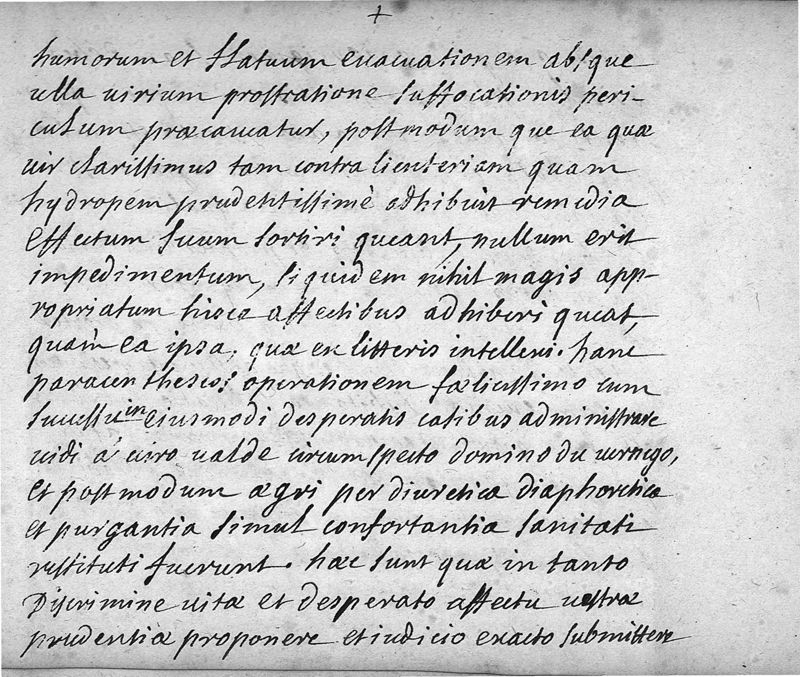 +
humorum et flatuum evacuationem absque
ulla virium prostratione suffocationis peri-
culum præcaveatur, postmodum que ea quæ
vir clarissimus tam contra lienteriam quam
hydropem prudentissimè adhibuit remedia
effectum suum sortiri queant, nullum erit
impedimentum, siquidem nihil magis app-
ropriatum hisce affectibus adhiberi queat,
quàm ea ipsa, quæ ex litteris intellexi. hanc
paracentheseos operationem fœlicissimo cum
successu in eiusmodi desperatis casibus administrare
vidi à viro valde circumspecto domino du vernejo,
et postmodum ægri per diuretica diaphoretica
et purgantia simul confortantia sanitati
restituti fuerunt. hæc sunt quæ in tanto
Discrimine vitæ et desperato affectu vestræ
prudentiæ proponere et iudicio exacto submittere